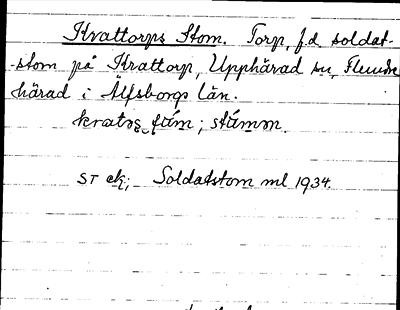 Krattorps Stom. Torp, f.d. soldat-
-stom på Krattorp, Upphärad sn, Flundre
härad i Älfsborgs län.
ståmm
ST ek; Soldatstom ml 1934.